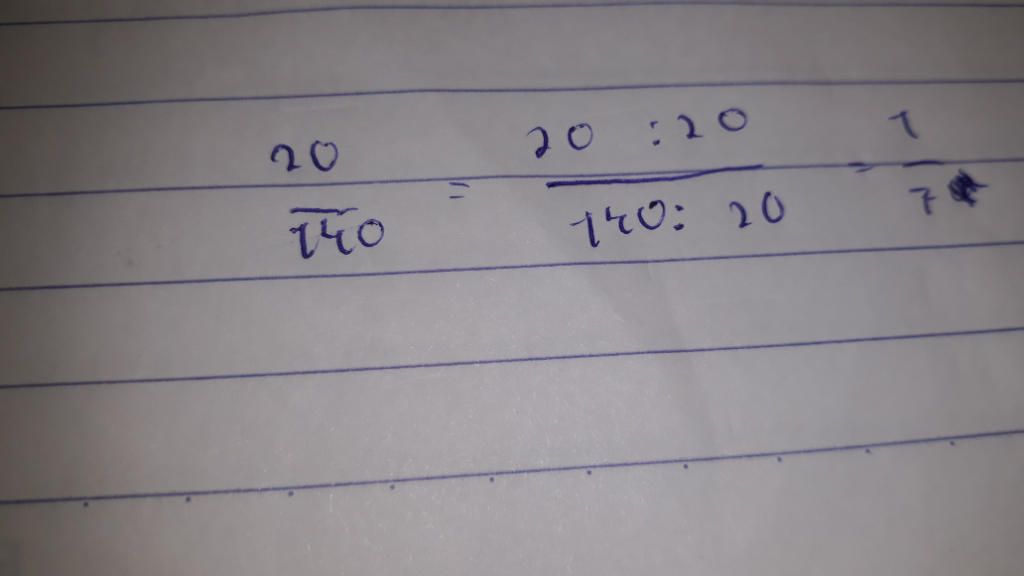 20/140 = 20 :20/140: 20 = 1/7